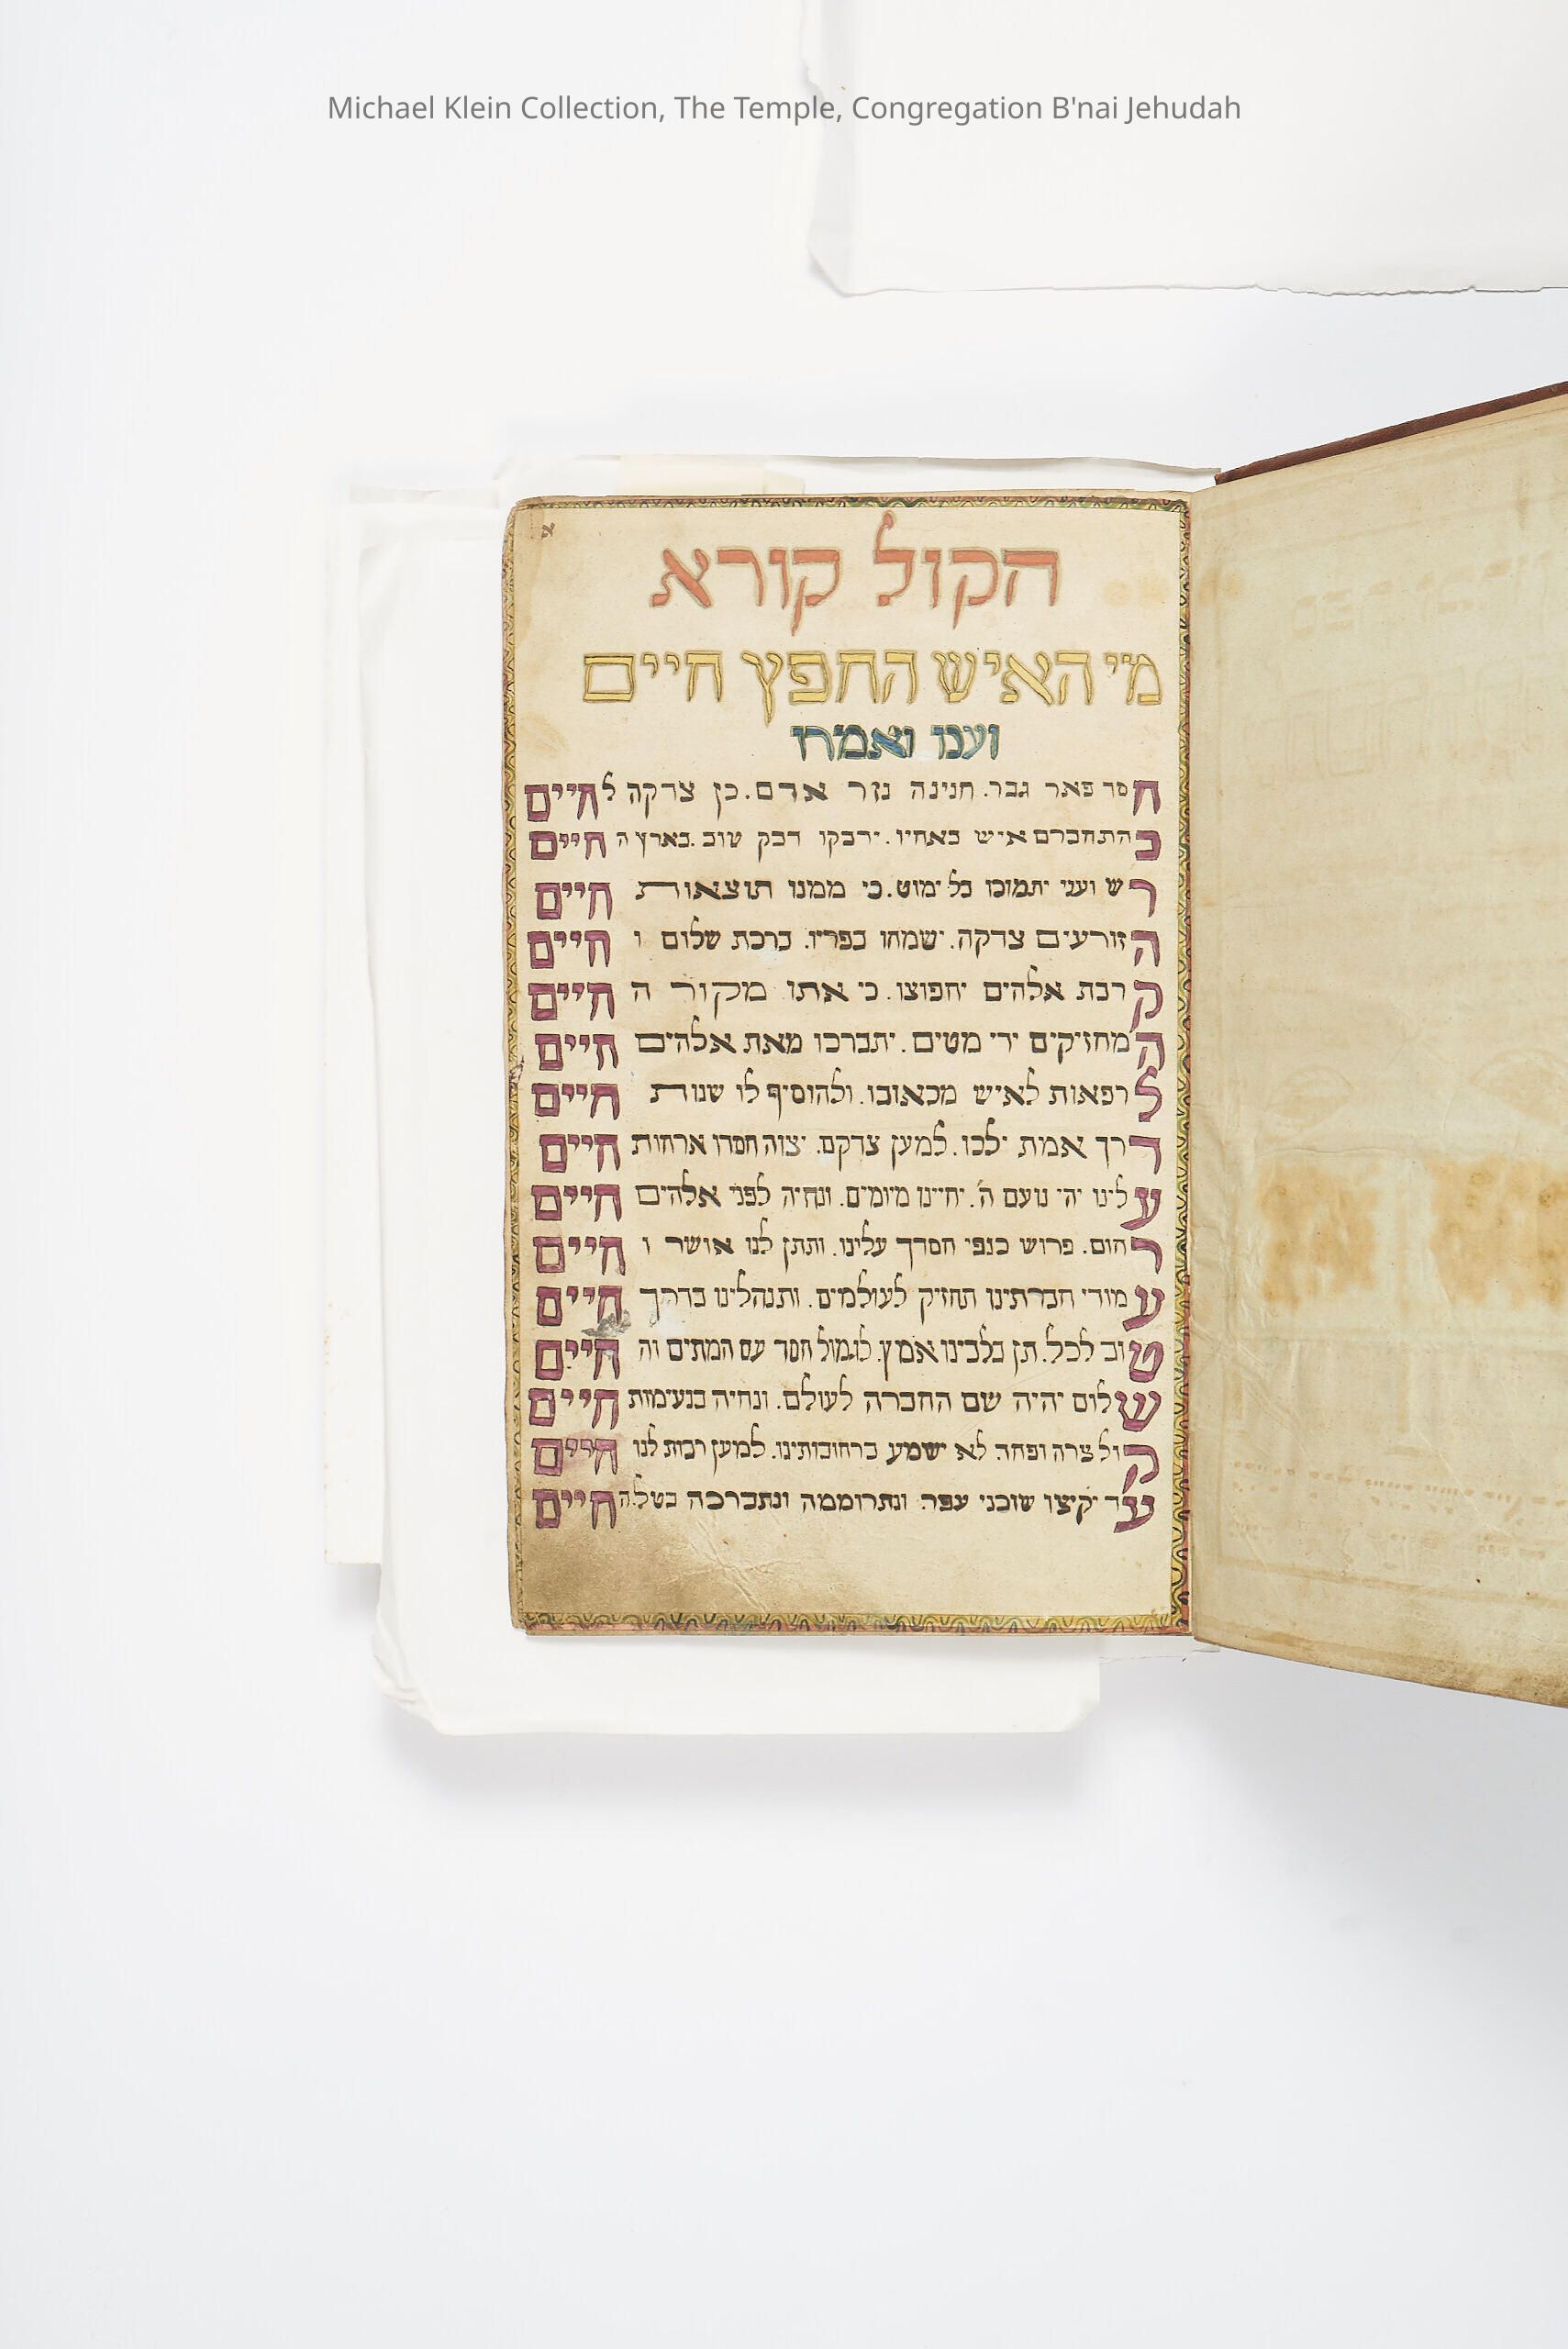 Michael Klein Collection, The Temple, Congregation B'nai Jehudah
א
הקול קורא
מי האיש החפץ חיים
וענו ואמרו
חסד פאר גבר. חנינה נזר אדם. כן צדקה לחיים
בהתחברם איש באחיו. ידבקו דבק טוב. בארץ החיים
רש ועני יתמוכו בל ימוט. כי ממנו תוצאות חיים
הזורעים צדקה. ישמחו בפריו. ברכת שלום וחיים
קרבת אלהים יחפוצו. כי אתו מקור החיים
המחזיקים ידי מטים. יתברכו מאת אלהים חיים
לרפאות לאיש מכאובו. ולהוסיף לו שנות חיים
דרך אמת ילכו. למען צדקם. יצוה חסדו ארחות חיים
עלינו יהי נועם ה'. יחיינו מיומים. ונחיה לפני אלהים חיים
רחום. פרוש כנפי חסדך עלינו. ותתן לנו אושר וחיים
עמודי חברתינו תחזיק לעולמים. ותנהלינו בדרך חיים
טוב לכל. תן בלבינו אמץ. לגמול חסד עם המתים והחיים
שלום יהיה שם החברה לעולם. ונחיה בנעימות חיים
קול צרה ופחד. לא ישמע ברחובותינו. למען רבות לנו חיים
עד יקיצו שוכני עפר. ונתרוממה ונתברכה בטל החיים